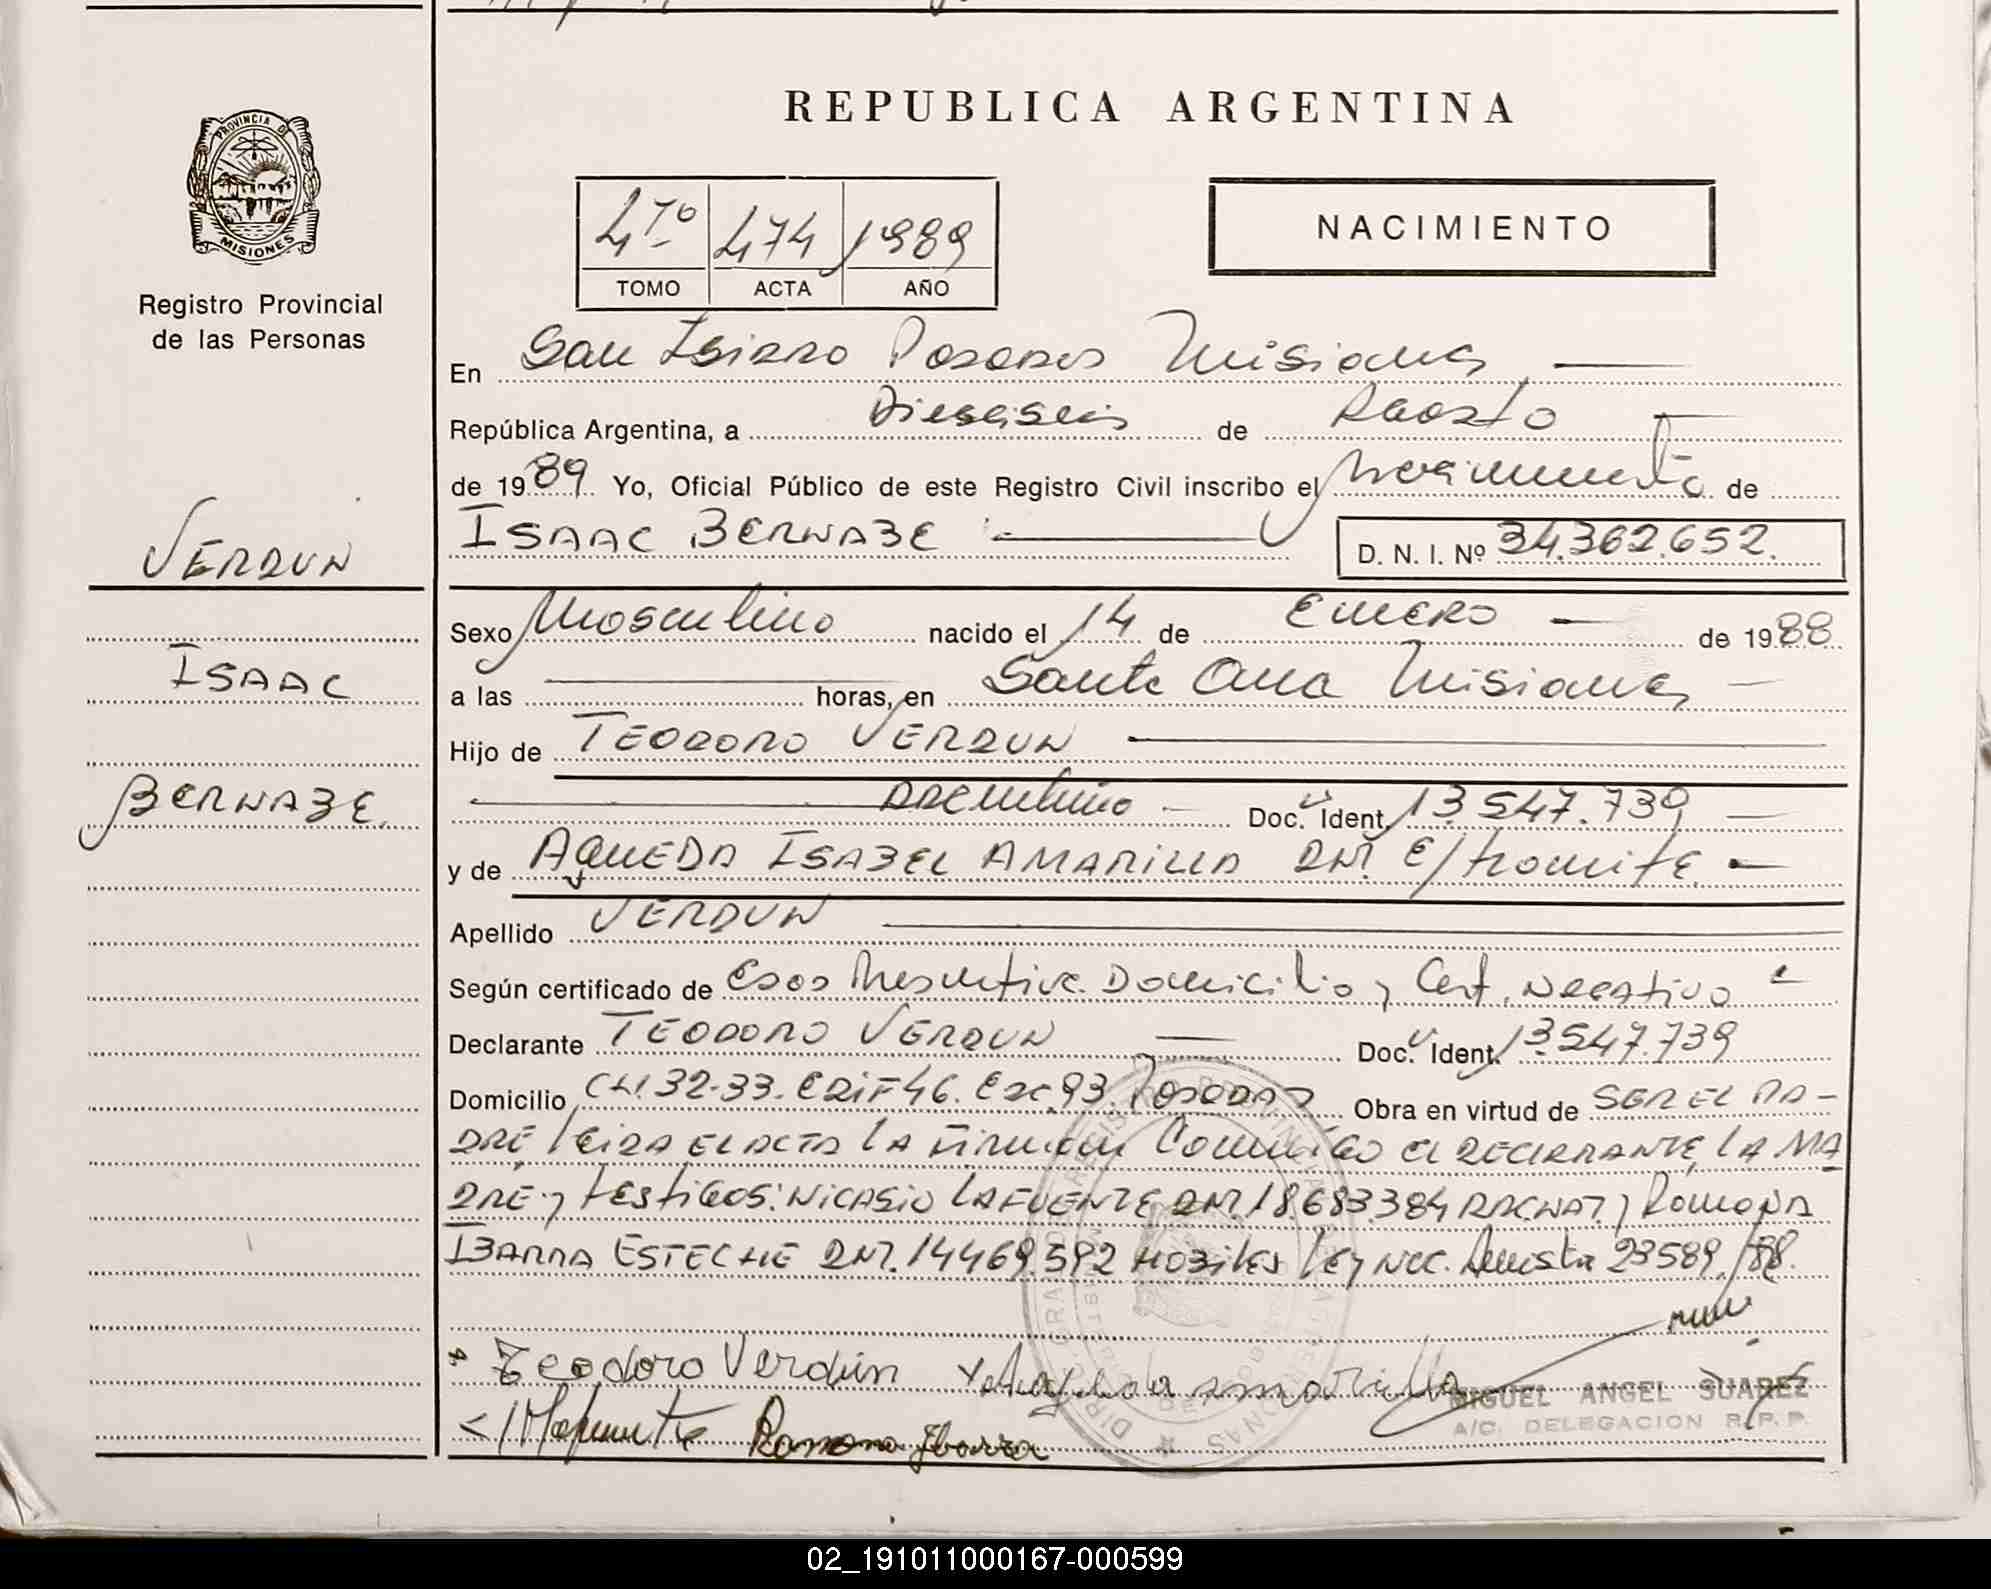 REPUBLICA ARGENTINA
PROVINCIA DE
MISIONES
Registro Provincial
de las Personas
4to 474 1989
TOMO ACTA AÑO
NACIMIENTO
En San Isidro Posadas Misiones
República Argentina, a Dieseseis de Agosto
de 1989 Yo, Oficial Público de este Registro Civil inscribo el Nacimiento de
ISAAC BERNABE D. N. I. Nº 34.362.652.
VERDUN
ISAAC
BERNABE.
Sexo Masculino nacido el 14 de ENERO de 1988
a las horas, en Santa Ana Misiones
Hijo de TEODORO VERDUN
Argentino Doc. Ident. 13.547.739
y de AGUEDA ISABEL AMARILLA DNI. E/tramite.
Apellido VERDUN
Según certificado de Edad Presuntiva. Domicilio y Cert. Negativo
Declarante TEODORO VERDUN Doc. Ident. 13.547.739
Domicilio CH. 32-33. EDIF 46. Esc. 93. Posadas Obra en virtud de SER EL PA-
DRE leida EL ACTA LA Firman Conmigo el DECLARANTE, LA MA
DRE y testigos: NICASIO LAFUENTE DNI. 18.683.384 ARG.NAT. y Romona
IBARRA ESTECHE DNI. 14469592 Habiles ley Nac. Amnistia 23589/88.
Teodoro Verdún x Agueda amarilla
Ramona Ibarra
MIGUEL ANGEL SUAREZ
A/C. DELEGACION R.P.P.
02_191011000167-000599